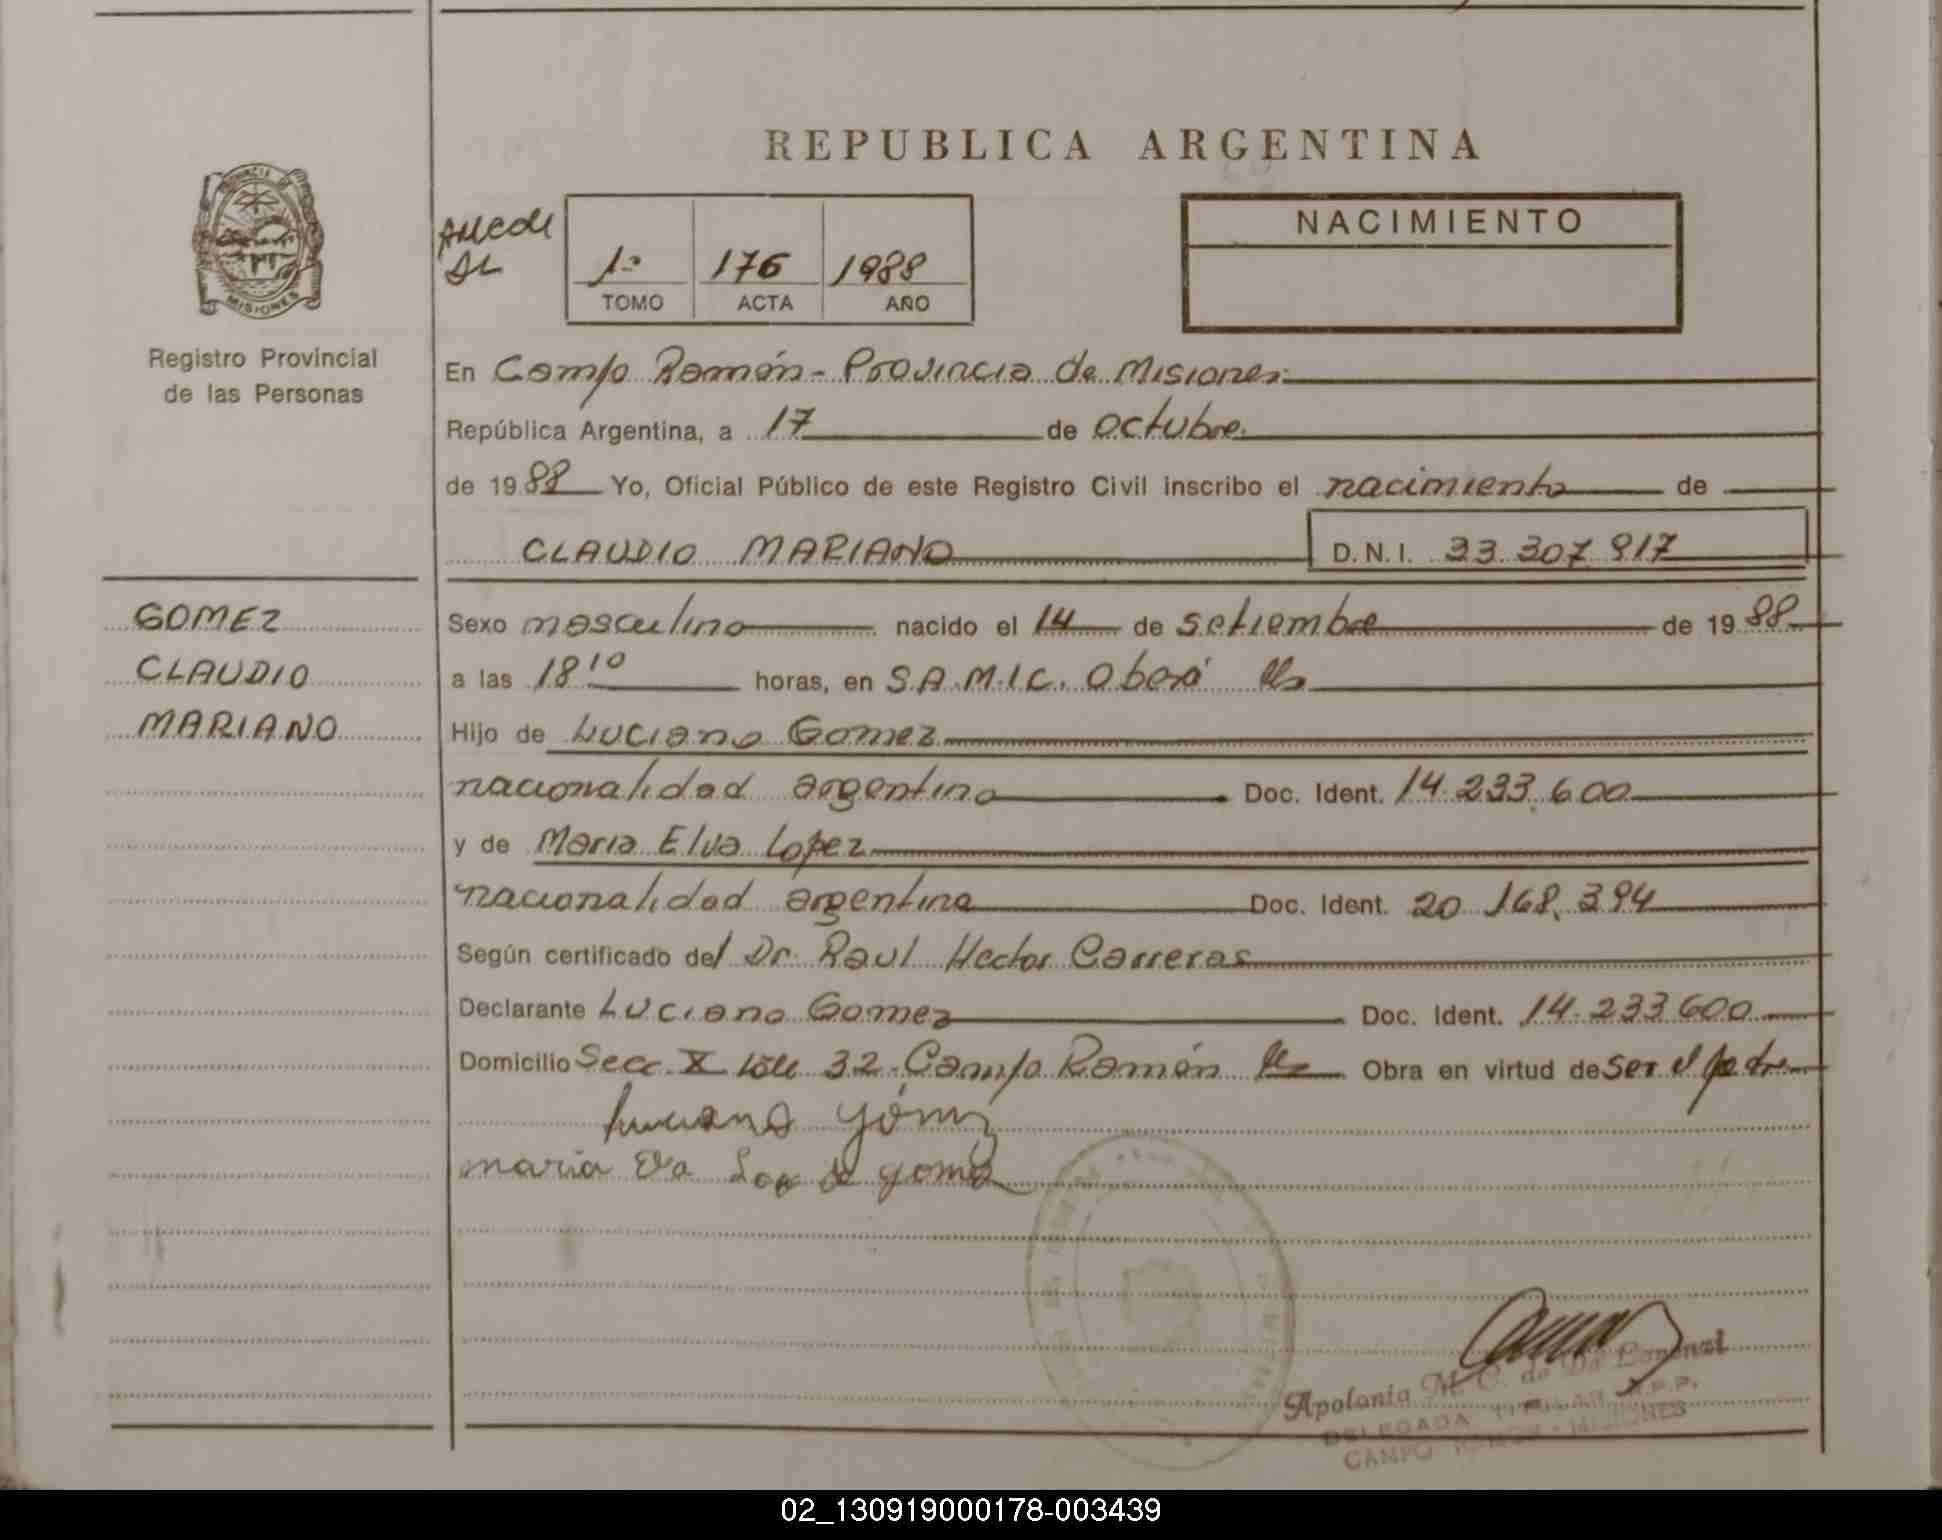 REPUBLICA ARGENTINA
PROVINCIA DE
MISIONES
Registro Provincial
de las Personas
1º 176 1988
TOMO ACTA AÑO
NACIMIENTO
En Campo Ramón - Provincia de Misiones
República Argentina, a 17 de octubre
de 1988 Yo, Oficial Público de este Registro Civil inscribo el nacimiento de
CLAUDIO MARIANO D.N.I. 33.307.917
GOMEZ
CLAUDIO
MARIANO
Sexo masculino nacido el 14 de setiembre de 1988
a las 18 10 horas, en S.A.M.I.C. Oberá
Hijo de Luciano Gomez
nacionalidad argentina Doc. Ident. 14.233.600
y de Maria Elva Lopez
nacionalidad argentina Doc. Ident. 20.168.394
Según certificado del Dr. Raul Hector Carreras
Declarante Luciano Gomez Doc. Ident. 14.233.600
Domicilio Secc. X lote 32. Campo Ramón Obra en virtud de ser el padre
Luciano Gómez
maria de gomez
Apolonia M. C. de
DELEGADA TITULAR R.P.P.
CAMPO RAMON - MISIONES
02_130919000178-003439